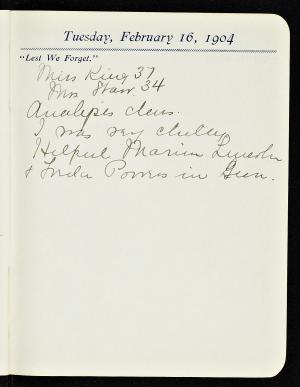 Tuesday, February 16, 1904
"Lest We Forget."
Miss King 37
Mrs Starr 34
Analysis class.
I was very
Helped Marion Lincoln
& Powers in Gym.